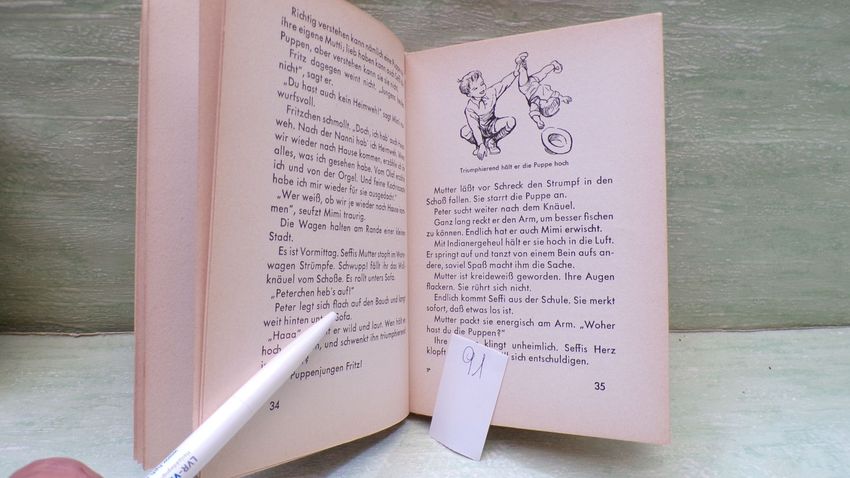 Richtig verstehen kann nämlich eine Puppe
ihre eigene Mutti; lieb haben kann auch
Puppen, aber verstehen kann sie sie nicht.
Fritz dagegen weint nicht. „Jungens
nicht", sagt er.
„Du hast auch kein Heimweh!" sagt Mimi
wurfsvoll.
Fritzchen schmollt. „Doch, ich hab' auch
weh. Nach der Nanni hab' ich Heimweh.
wir wieder nach Hause kommen, erzähle ich
alles, was ich gesehen habe. Vom Olaf
ich und von der Orgel. Und feine
habe ich mir wieder für sie ausgedacht."
„Wer weiß, ob wir je wieder nach Hause
men", seufzt Mimi traurig.
Die Wagen halten am Rande einer kleinen
Stadt.
Es ist Vormittag. Seffis Mutter stopft im
wagen Strümpfe. Schwupp! fällt ihr das
knäuel vom Schoße. Es rollt unters Sofa.
„Peterchen heb's auf!"
Peter legt sich flach auf den Bauch und langt
weit hinten unters Sofa.
„Haaa" er wild und laut. Wen hält er
hoch und schwenkt ihn triumphierend
Puppenjungen Fritz!
34
Triumphierend hält er die Puppe hoch
Mutter läßt vor Schreck den Strumpf in den
Schoß fallen. Sie starrt die Puppe an.
Peter sucht weiter nach dem Knäuel.
Ganz lang reckt er den Arm, um besser fischen
zu können. Endlich hat er auch Mimi erwischt.
Mit Indianergeheul hält er sie hoch in die Luft.
Er springt auf und tanzt von einem Bein aufs an-
dere, soviel Spaß macht ihm die Sache.
Mutter ist kreideweiß geworden. Ihre Augen
flackern. Sie rührt sich nicht.
Endlich kommt Seffi aus der Schule. Sie merkt
sofort, daß etwas los ist.
Mutter packt sie energisch am Arm. „Woher
hast du die Puppen?"
Ihre klingt unheimlich. Seffis Herz
klopft sich entschuldigen.
3*
35
91
LVR-